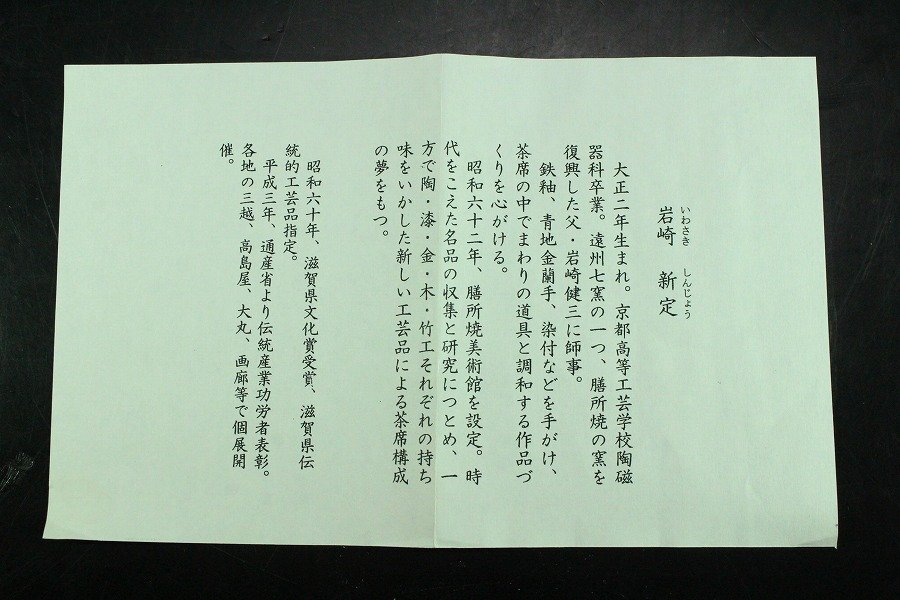 岩崎 新定
いわさき しんじょう
大正二年生まれ。京都高等工芸学校陶磁
器科卒業。遠州七窯の一つ、膳所焼の窯を
復興した父・岩崎健三に師事。
鉄釉、青地金蘭手、染付などを手がけ、
茶席の中でまわりの道具と調和する作品づ
くりを心がける。
昭和六十二年、膳所焼美術館を設定。時
代をこえた名品の収集と研究につとめ、一
方で陶・漆・金・木・竹工それぞれの持ち
味をいかした新しい工芸品による茶席構成
の夢をもつ。
昭和六十年、滋賀県文化賞受賞、滋賀県伝
統的工芸品指定。
平成三年、通産省より伝統産業功労者表彰。
各地の三越、高島屋、大丸、画廊等で個展開
催。